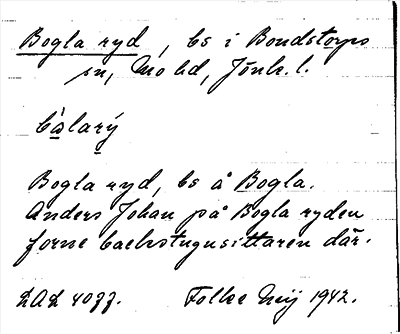 Bogla ryd, bs i Bondstorps
sn, Mo hd, Jönk. l.
Bogla ryd, bs å Bogla.
Anders Johan på Bogla ryden
forne backstugusittaren där.
LAL 4077. Folke Mij 1942.